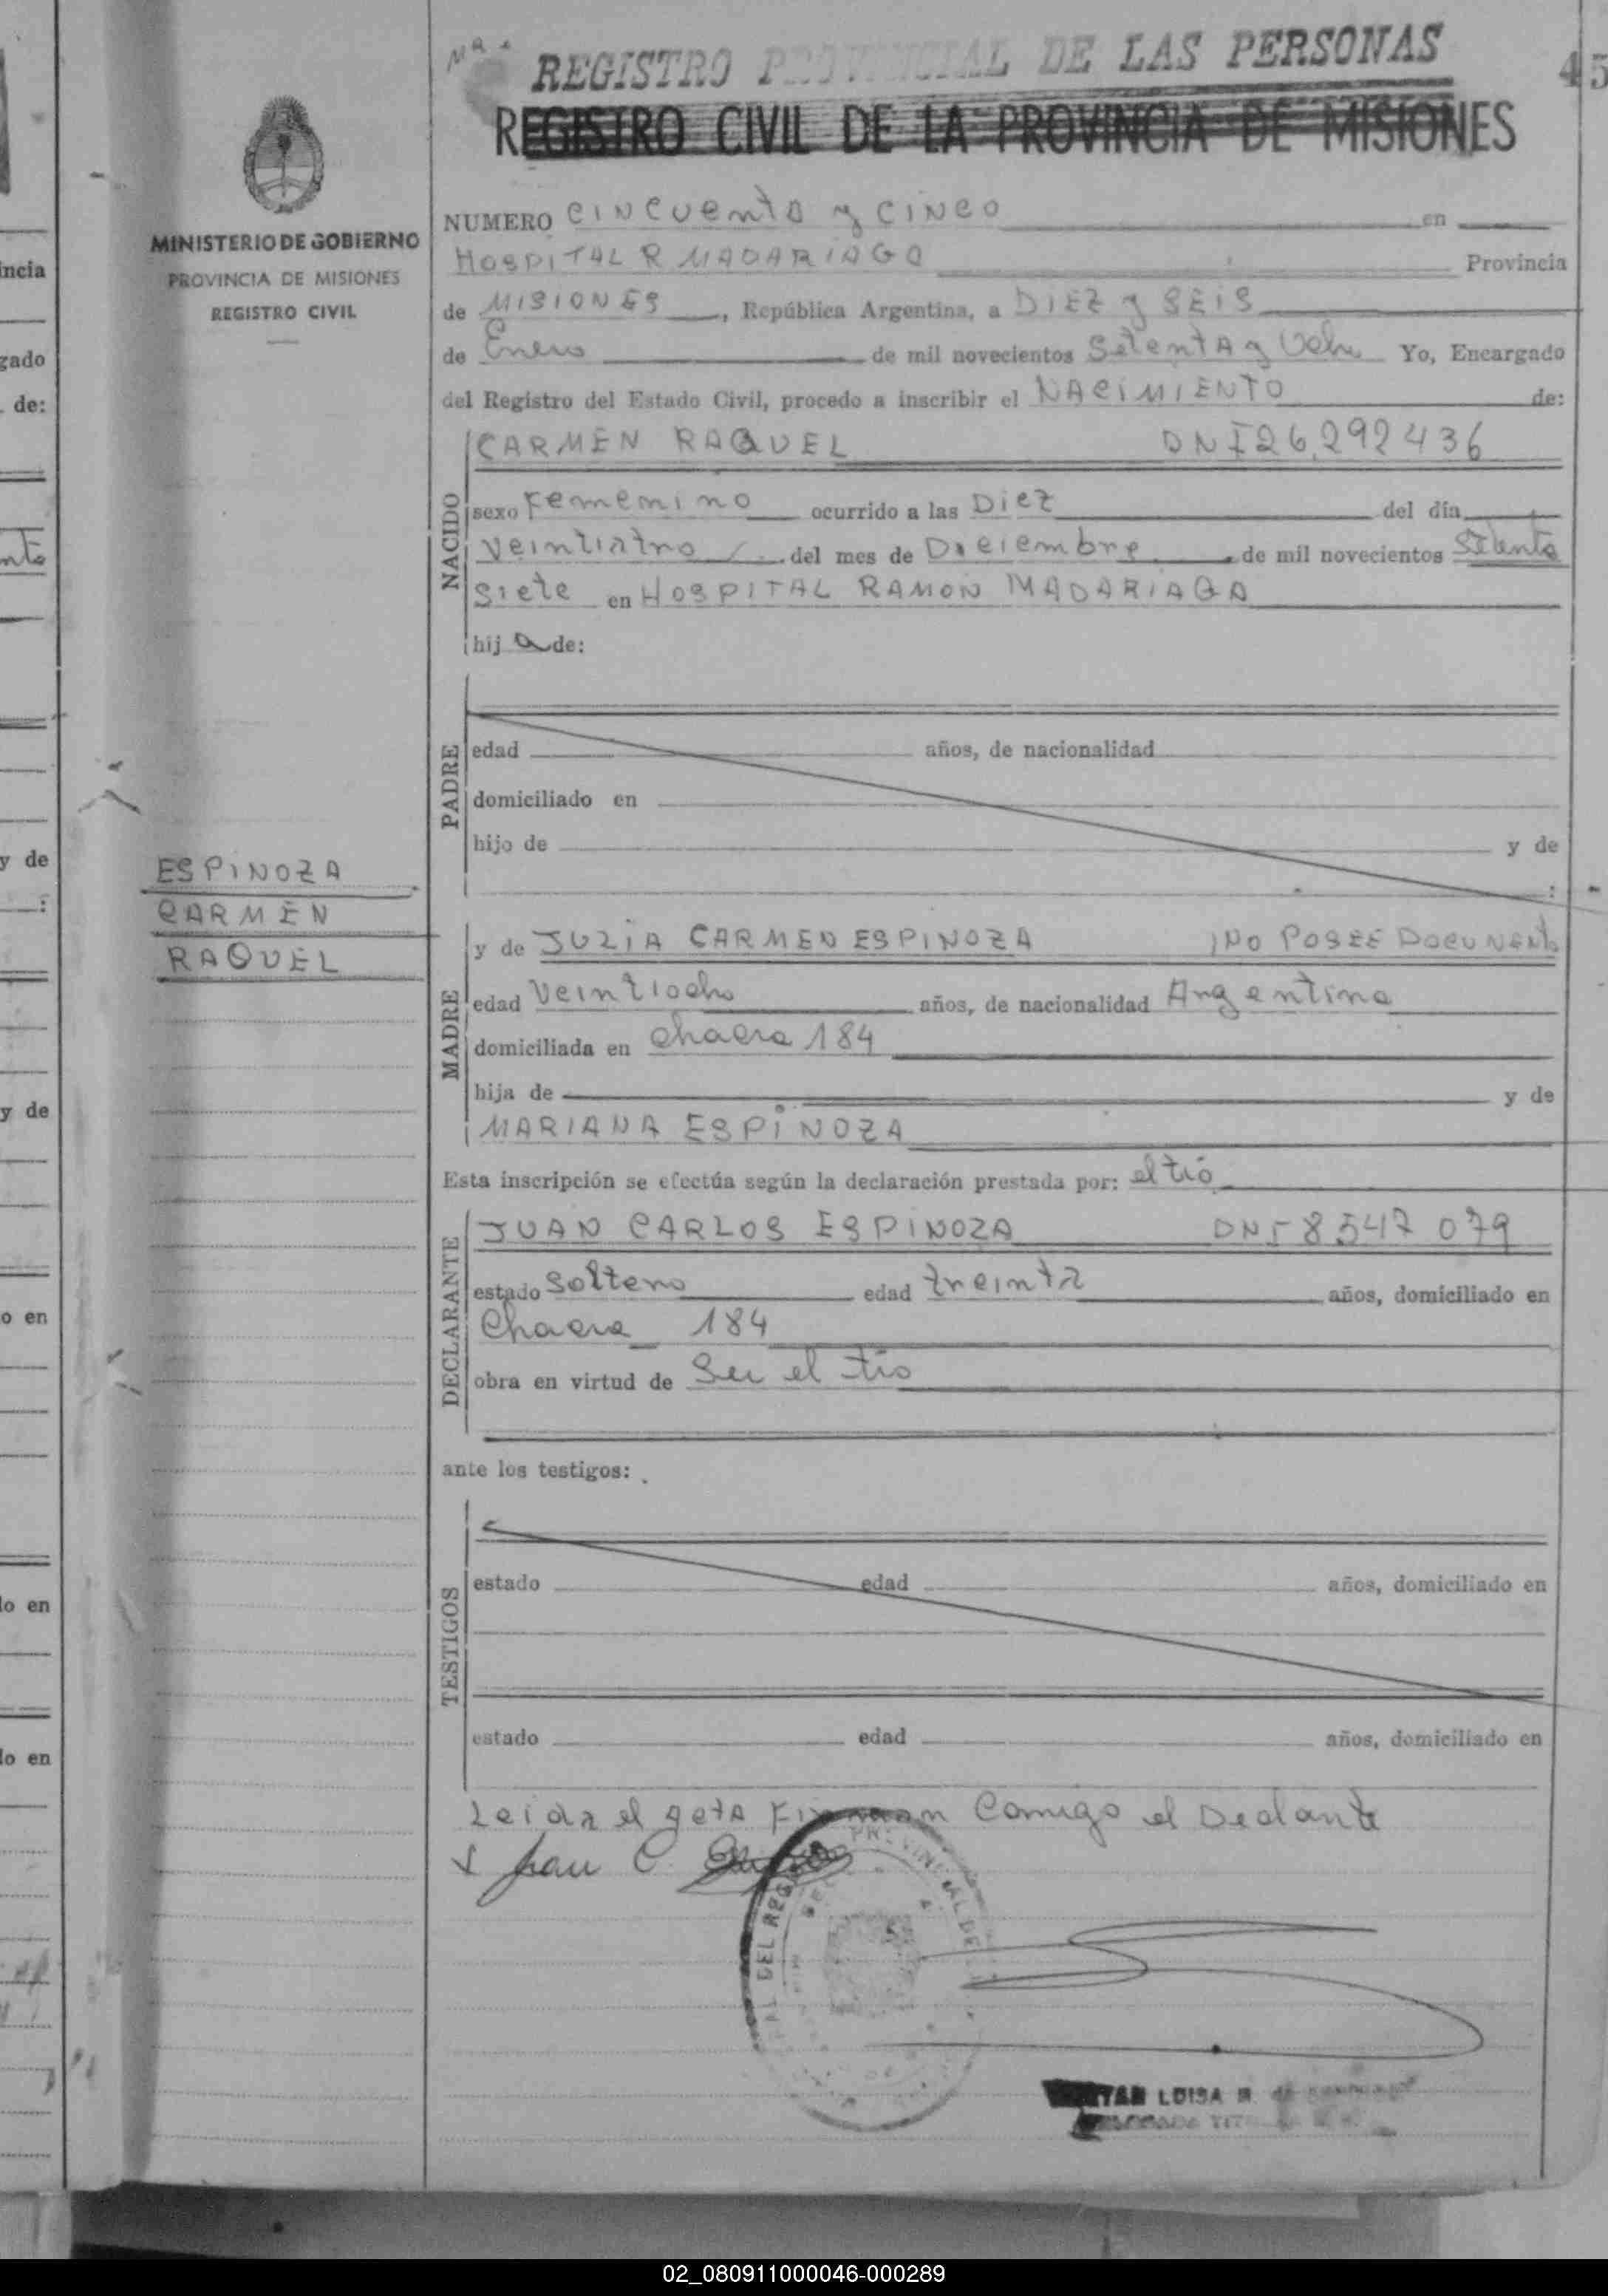 REGISTRO PROVINCIAL DE LAS PERSONAS
45
REGISTRO CIVIL DE LA PROVINCIA DE MISIONES
MINISTERIO DE GOBIERNO
PROVINCIA DE MISIONES
REGISTRO CIVIL
NUMERO CINCUENTA y CINCO en
HOSPITAL R MADARIAGA Provincia
de MISIONES, República Argentina, a DIEZ y SEIS
de Enero de mil novecientos SETENTA y Ocho Yo, Encargado
del Registro del Estado Civil, procedo a inscribir el NACIMIENTO de:
NACIDO
CARMEN RAQUEL DNI 26.292436
sexo Femenino ocurrido a las Diez del día
del mes de Diciembre de mil novecientos Setenta
Siete en HOSPITAL RAMON MADARIAGA
hij a de:
PADRE
edad años, de nacionalidad
domiciliado en
hijo de y de
:
ESPINOZA
CARMEN
RAQUEL
MADRE
y de JULIA CARMEN ESPINOZA NO POSEE DOCUMENTO
edad Veintiocho años, de nacionalidad Argentina
domiciliada en Chacra 184
hija de y de
MARIANA ESPINOZA
Esta inscripción se efectúa según la declaración prestada por: el tío
DECLARANTE
JUAN CARLOS ESPINOZA DNI 8547 079
estado Soltero edad treinta años, domiciliado en
Chacra 184
obra en virtud de Ser el tío
ante los testigos:
TESTIGOS
estado edad años, domiciliado en
estado edad años, domiciliado en
Leida el acta Firman Comigo el Declante
Juan C.
LUISA